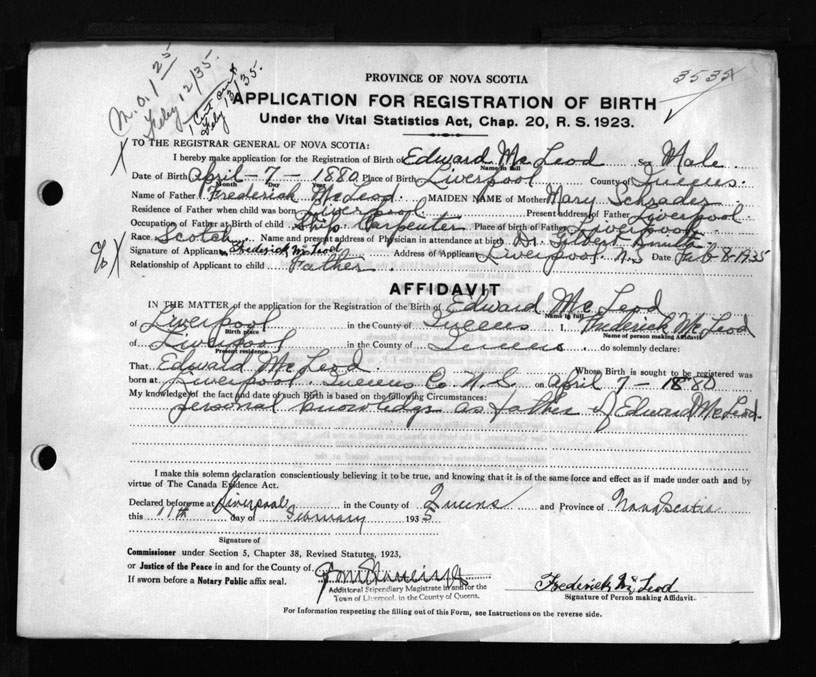 M.O. 1 25
Feby 12/35.
1 Cert
Feby 13/35.
3535
PROVINCE OF NOVA SCOTIA
APPLICATION FOR REGISTRATION OF BIRTH
Under the Vital Statistics Act, Chap. 20, R. S. 1923.
TO THE REGISTRAR GENERAL OF NOVA SCOTIA:
I hereby make application for the Registration of Birth of Edward Mc Leod Sex Male
Name in full
Date of Birth April - 7 - 1880 Place of Birth Liverpool County of Queens.
Month Day Year
Name of Father Frederick McLeod. MAIDEN NAME of Mother Mary Schrader
Residence of Father when child was born Liverpool Present address of Father Liverpool
Occupation of Father at Birth of child Ship Carpenter Place of birth of Father Liverpool
Race Scotch Name and present address of Physician in attendance at birth Dr.
Signature of Applicant Frederick McLeod Address of Applicant Liverpool N.S Date Feb-8-1935
Relationship of Applicant to child Father.
AFFIDAVIT
IN THE MATTER of the application for the Registration of the Birth of Edward Mc Leod
Name in full
of Liverpool in the County of Queens I, Frederick Mc Leod
Birth place Name of person making Affidavit
of Liverpool in the County of Queens do solemnly declare:
Present residence
That Edward Mc Leod. Whose Birth is sought to be registered was
born at Liverpool. Queens Co. N.S. on April 7 - 1880
My knowledge of the fact and date of such Birth is based on the following Circumstances:
personal knowledge as father of Edward McLeod.
I make this solemn declaration conscientiously believing it to be true, and knowing that it is of the same force and effect as if made under oath and by
virtue of The Canada Evidence Act.
Declared before me at Liverpool in the County of Queens and Province of Nova Scotia
this 11th day of February 1935
Signature of
Commissioner under Section 5, Chapter 38, Revised Statutes, 1923,
or Justice of the Peace in and for the County of
If sworn before a Notary Public affix seal.
Additional Stipendiary Magistrate in and for the
Town of Liverpool, in the County of Queens.
Frederick McLeod
Signature of Person making Affidavit.
For Information respecting the filling out of this Form, see Instructions on the reverse side.